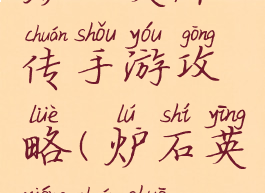 chuán shǒu yóu gōng
传手游攻
lüè lú shí yīng
略(炉石英